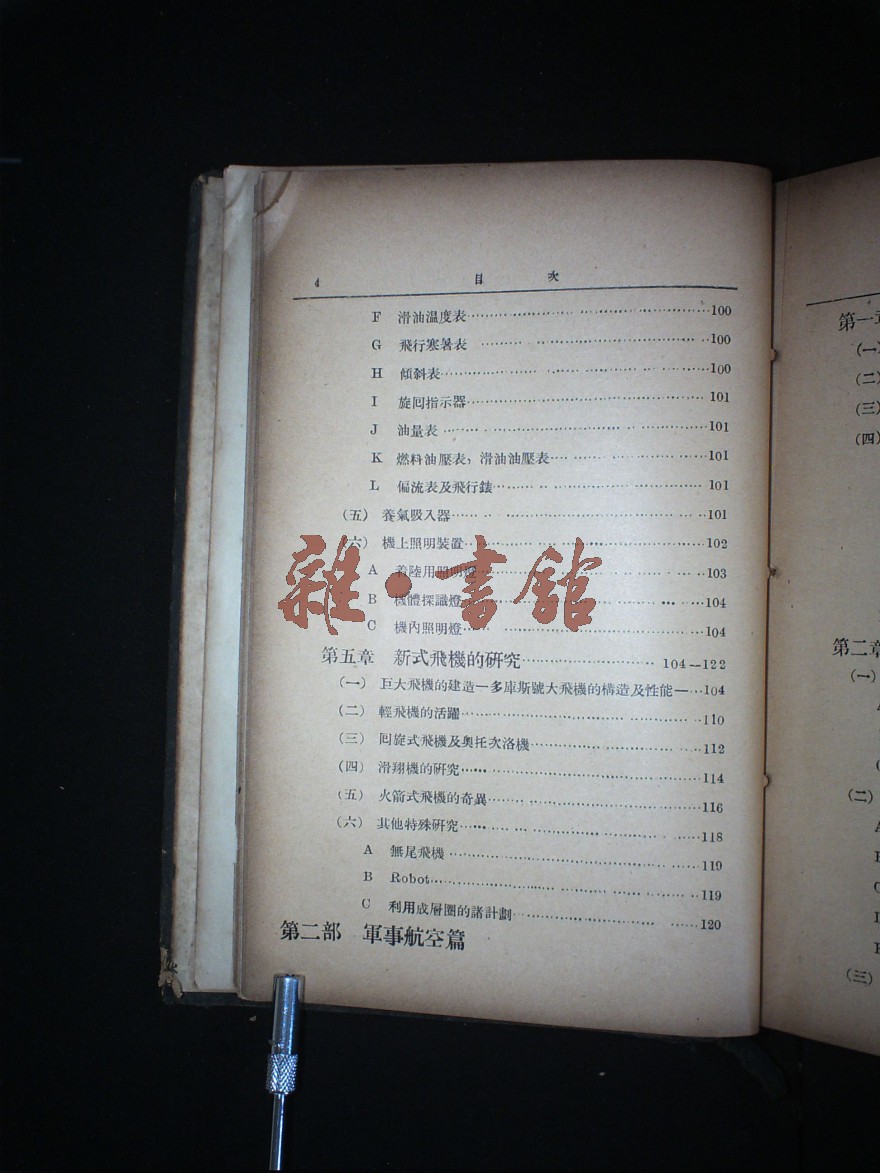 4 目 次
F 滑油温度表 100
G 飛行寒暑表 100
H 傾斜表 100
I 旋囘指示器 101
J 油量表 101
K 燃料油壓表，滑油油壓表 101
L 偏流表及飛行錶 101
(五) 養氣吸入器 101
(六) 機上照明裝置 102
A 着陸用照明燈 103
B 機體探識燈 104
C 機內照明燈 104
雜·書館
第五章 新式飛機的研究 104—122
(一) 巨大飛機的建造—多庫斯號大飛機的構造及性能— 104
(二) 輕飛機的活躍 110
(三) 囘旋式飛機及奧托次洛機 112
(四) 滑翔機的研究 114
(五) 火箭式飛機的奇異 116
(六) 其他特殊研究 118
A 無尾飛機 119
B Robot 119
C 利用成層圈的諸計劃 120
第二部 軍事航空篇
第一
(一)
(二)
(三)
(四)
第二章
(一)
(二)
(三)